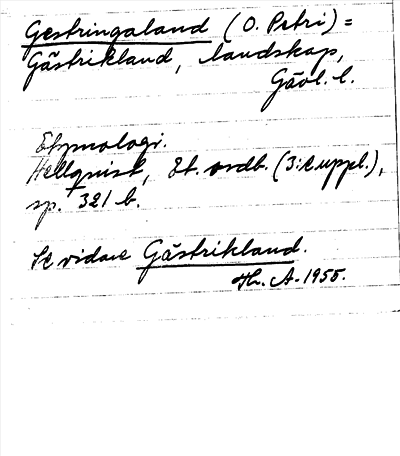 Gestringaland (O. Petri) =
Gästrikland, landskap,
Gävl. l.
Etymologi.
Hellquist, Et. ordb. (3:e uppl.),
sp. 321 b.
Se vidare Gästrikland.
Hr. A. 1955.